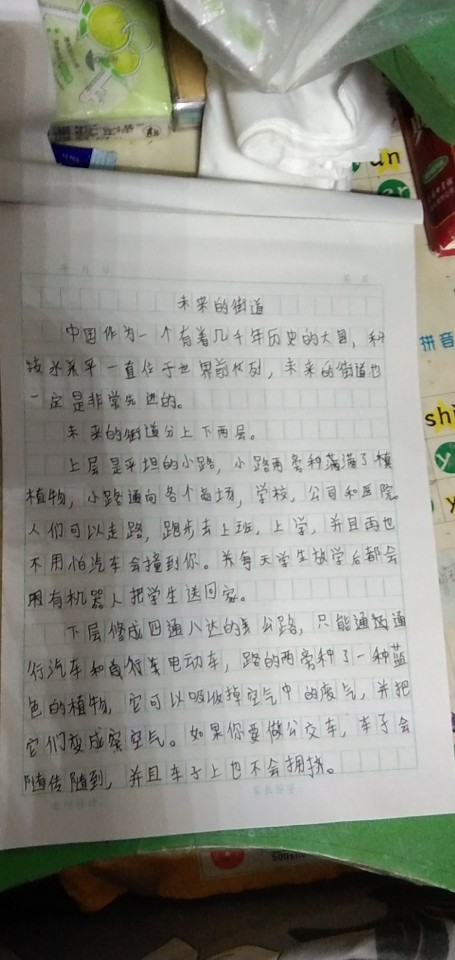 un
拼音
sh
y
年 月 日
未来的街道
中国作为一个有着几千年历史的大国，科
技水平一直位于世界前列，未来的街道也
一定是非常先进的。
未来的街道分上下两层。
上层是平坦的小路，小路两旁种满了植
植物，小路通向各个商场，学校，公司和医院。
人们可以走路，跑步去上班，上学，并且再也
不用怕汽车会撞到你。并每天学生放学后都会
用有机器人把学生送回家。
下层修成四通八达的公路，只能通通
行汽车和自行车电动车，路的两旁种了一种蓝
色的植物，它可以吸收掉空气中的废气，并把
它们变成空气。如果你要做公交车，车子会
随传随到，并且车子上也不会拥挤。